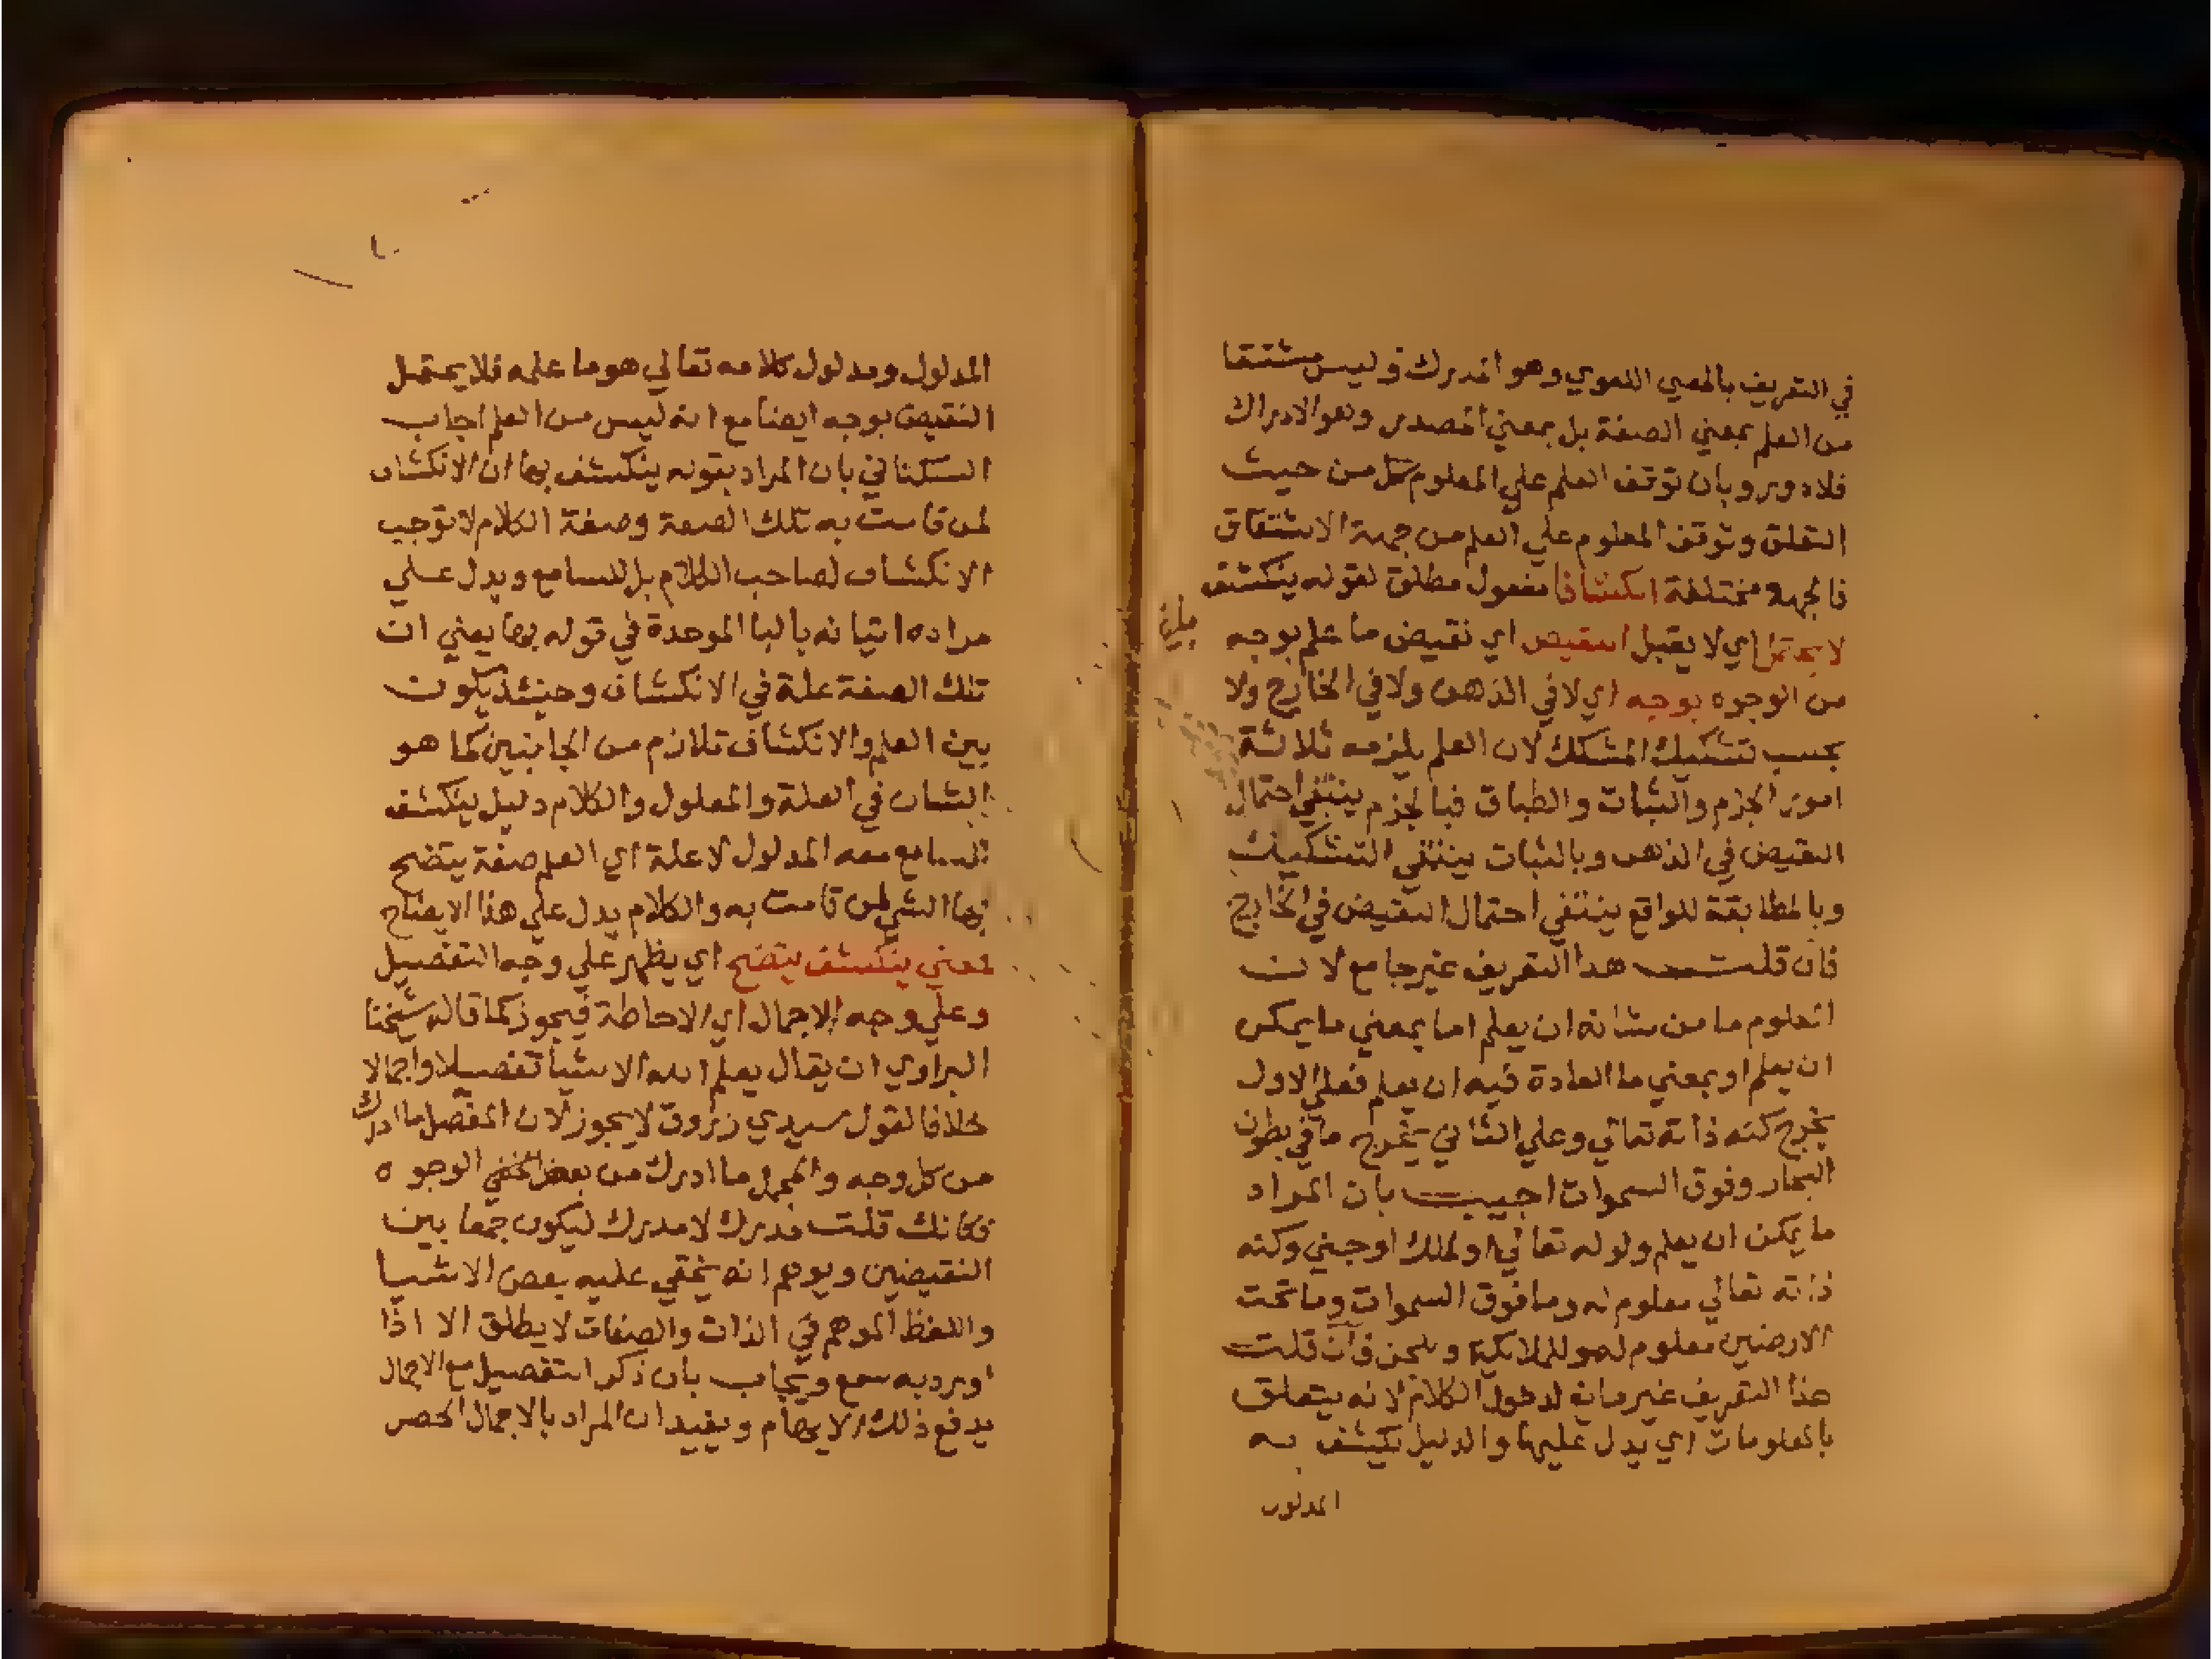 في التعريف بالمعني اللغوي وهو المدرك وليس مشتقا
من العلم بمعني الصفة بل بمعني المصدر وهو الادراك
فلا دور وبان توقف العلم علي المعلوم من حيث
التعلق وتوقف المعلوم علي العلم من جهة الاشتقاق
فالجهة مختلفة انكشافا مفعول مطلق لقوله ينكشف
لا يحتمل اي لا يقبل النقيض اي نقيض ما علم بوجه
من الوجوه بوجه اي لا في الذهن ولا في الخارج ولا
بحسب تشكيك المشكك لان العلم يلزمه ثلاثة
امور الجزم والثبات والطباق فبالجزم ينتفي احتمال
النقيض في الذهن وبالثبات ينتفي التشكيك
وبالمطابقة للواقع ينتفي احتمال النقيض في الخارج
فان قلت هذا التعريف غير جامع لان
المعلوم ما من شانه ان يعلم اما بمعني ما يمكن
ان يعلم او بمعني ما العادة فيه ان يعلم فعلي الاول
يخرج كنه ذاته تعالي وعلي الثاني يخرج ما في بطون
البحار وفوق السموات اجيب بان المراد
ما يمكن ان يعلم ولو له تعالي او لملك او جني وكنه
ذاته تعالي معلوم له وما فوق السموات وما تحت
الارضين معلوم له وللملائكة وللجن فان قلت
هذا التعريف غير مانع لدخول الكلام لانه يتعلق
بالمعلومات اي يدل عليها والدليل يكشف به
المدلول
المدلول ومدلول كلامه تعالي هو ما علمه فلا يحتمل
النقيض بوجه ايضا مع انه ليس من العلم اجاب
السكتاني بان المراد بقوله ينكشف بها ان الانكشاف
لمن قامت به تلك الصفة وصفة الكلام لا توجب
الانكشاف لصاحب الكلام بل للسامع ويدل علي
مراده اتيانه بالبا الموحدة في قوله بها يعني ان
تلك الصفة علة في الانكشاف وحينئذ يكون
بين العلم والانكشاف تلازم من الجانبين كما هو
الشان في العلة والمعلول والكلام دليل ينكشف
للسامع معه المدلول لا علة اي العلم صفة يتضح
بها الشي لمن قامت به والكلام يدل علي هذا الايضاح
معني ينكشف يتضح اي يظهر علي وجه التفصيل
وعلي وجه الاجمال اي الاحاطة فيجوز كما قاله شيخنا
البراوي ان يقال يعلم الله الاشيا تفصيلا واجمالا
خلافا لقول سيدي زروق لا يجوز لان المفصل ما ادرك
من كل وجه والمجمل ما ادرك من بعض الوجوه
فكانك قلت مدرك لا مدرك ليكون جمعا بين
النقيضين ويوهم انه يخفي عليه بعض الاشيا
واللفظ الموهم في الذات والصفات لا يطلق الا اذا
اورد به سمع ويجاب بان ذكر التفصيل مع الاجمال
يدفع ذلك الايهام ويفيد ان المراد بالاجمال الحصر